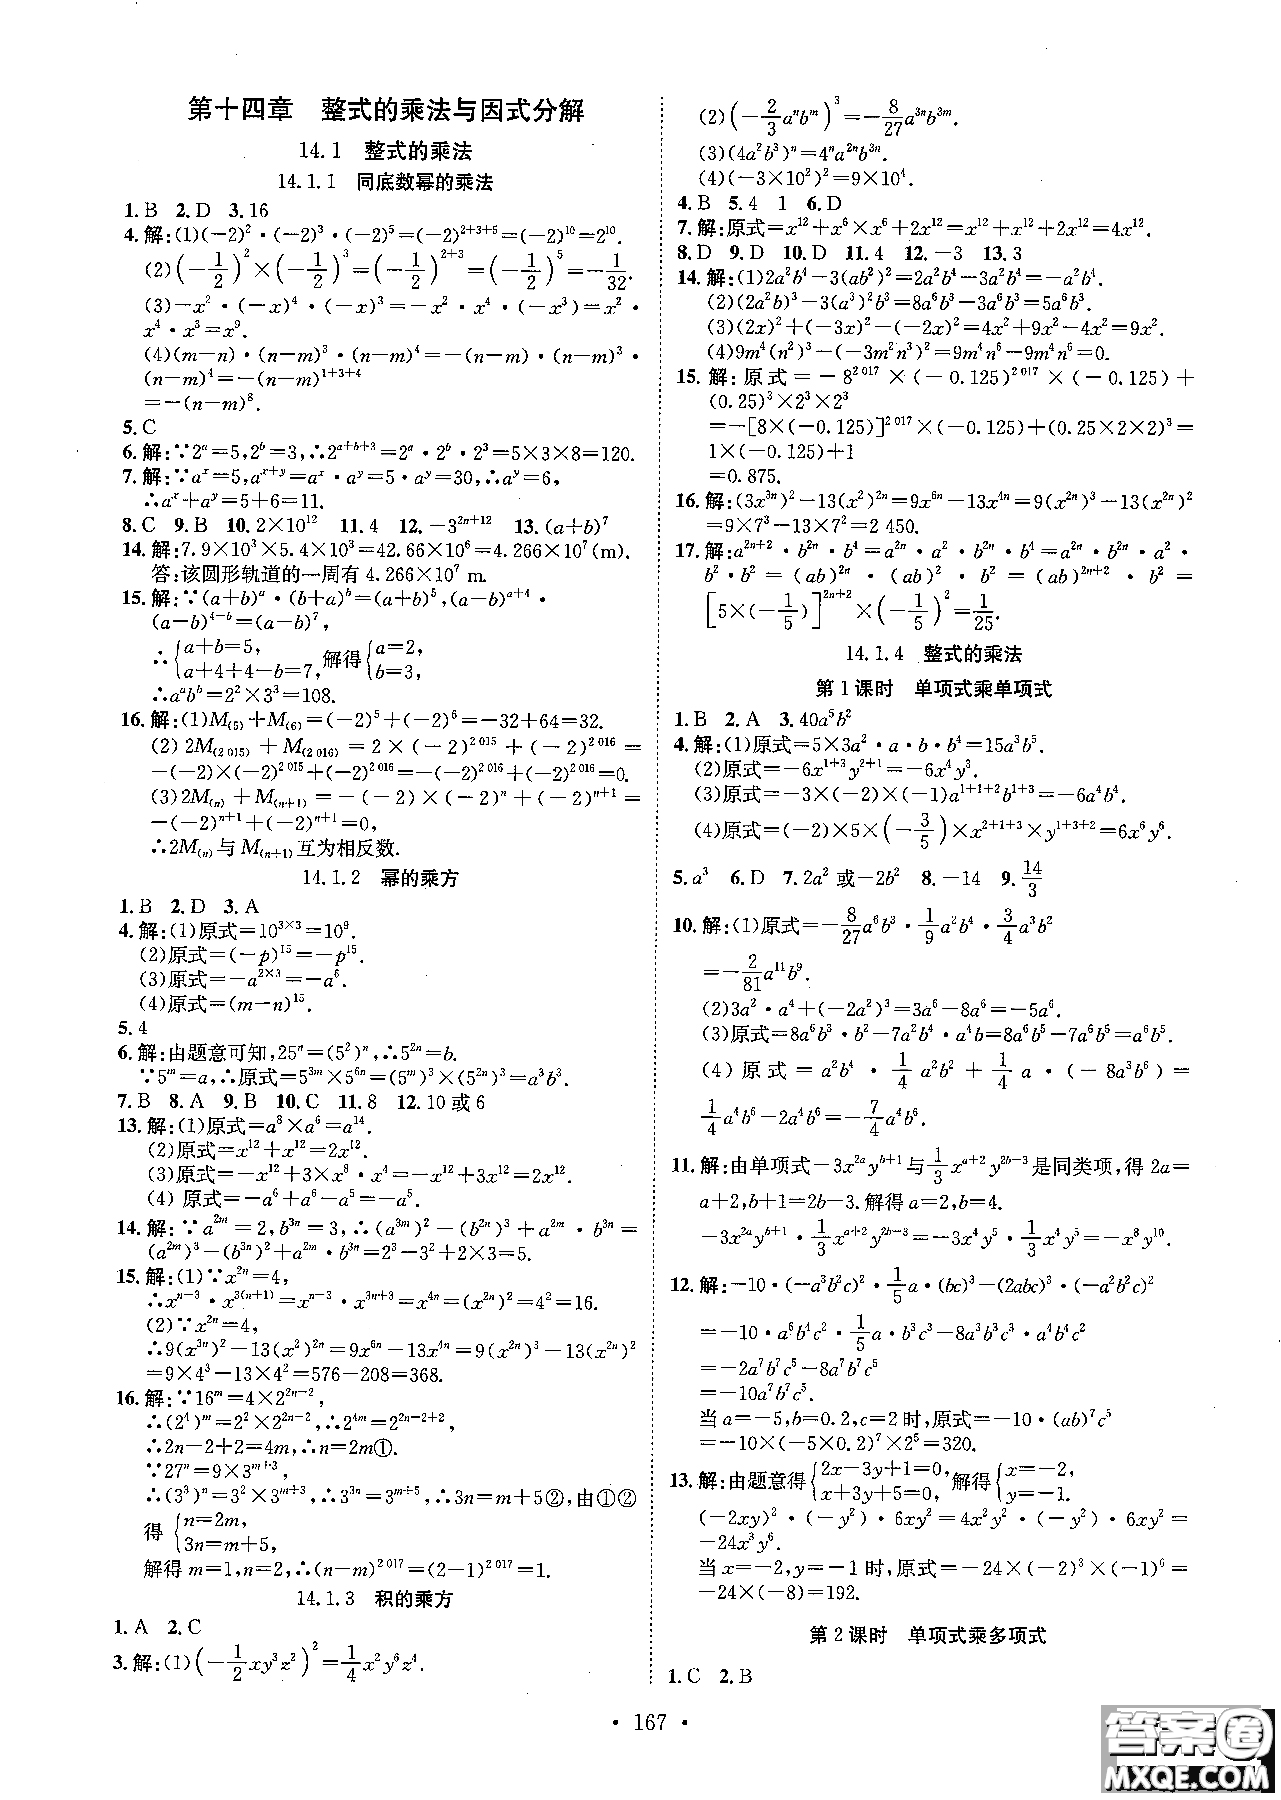 第十四章 整式的乘法与因式分解
14.1 整式的乘法
14.1.1 同底数幂的乘法
1.B 2.D 3.16
4.解:(1)(-2)²·(-2)³·(-2)⁵=(-2)²⁺³⁺⁵=(-2)¹⁰=2¹⁰.
(2)(-1/2)²×(-1/2)³=(-1/2)²⁺³=(-1/2)⁵=-1/32.
(3)-x²·(-x)⁴·(-x)³=-x²·x⁴·(-x³)=x²·
x⁴·x³=x⁹.
(4)(m-n)·(n-m)³·(n-m)⁴=-(n-m)·(n-m)³·
(n-m)⁴=-(n-m)¹⁺³⁺⁴
=-(n-m)⁸.
5.C
6.解:∵2ᵃ=5,2ᵇ=3,∴2ᵃ⁺ᵇ⁺³=2ᵃ·2ᵇ·2³=5×3×8=120.
7.解:∵aˣ=5,aˣ⁺ʸ=aˣ·aʸ=5·aʸ=30,∴aʸ=6,
∴aˣ+aʸ=5+6=11.
8.C 9.B 10.2×10¹² 11.4 12.-3²ⁿ⁺¹² 13.(a+b)⁷
14.解:7.9×10³×5.4×10³=42.66×10⁶=4.266×10⁷(m).
答:该圆形轨道的一周有4.266×10⁷ m.
15.解:∵(a+b)ᵃ·(b+a)ᵇ=(a+b)⁵,(a-b)ᵃ⁺⁴·
(a-b)⁴⁻ᵇ=(a-b)⁷,
∴{a+b=5, a+4+4-b=7, 解得{a=2, b=3,
∴aᵃbᵇ=2²×3³=108.
16.解:(1)M₍₅₎+M₍₆₎=(-2)⁵+(-2)⁶=-32+64=32.
(2)2M₍₂ ₀₁₅₎+M₍₂ ₀₁₆₎=2×(-2)² ⁰¹⁵+(-2)² ⁰¹⁶=
-(-2)×(-2)² ⁰¹⁵+(-2)² ⁰¹⁶=-(-2)² ⁰¹⁶+(-2)² ⁰¹⁶=0.
(3)2M₍ₙ₎+M₍ₙ₊₁₎=-(-2)×(-2)ⁿ+(-2)ⁿ⁺¹=
-(-2)ⁿ⁺¹+(-2)ⁿ⁺¹=0,
∴2M₍ₙ₎与M₍ₙ₊₁₎互为相反数.
14.1.2 幂的乘方
1.B 2.D 3.A
4.解:(1)原式=10³ˣ³=10⁹.
(2)原式=(-p)¹⁵=-p¹⁵.
(3)原式=-a²ˣ³=-a⁶.
(4)原式=(m-n)¹⁵.
5.4
6.解:由题意可知,25ⁿ=(5²)ⁿ,∴5²ⁿ=b.
∵5ᵐ=a,∴原式=5³ᵐ×5⁶ⁿ=(5ᵐ)³×(5²ⁿ)³=a³b³.
7.B 8.A 9.B 10.C 11.8 12.10或6
13.解:(1)原式=a⁸×a⁶=a¹⁴.
(2)原式=x¹²+x¹²=2x¹².
(3)原式=-x¹²+3×x⁸·x⁴=-x¹²+3x¹²=2x¹².
(4)原式=-a⁶+a⁶-a⁵=-a⁵.
14.解:∵a²ᵐ=2,b³ⁿ=3,∴(a³ᵐ)²-(b²ⁿ)³+a²ᵐ·b³ⁿ=
(a²ᵐ)³-(b³ⁿ)²+a²ᵐ·b³ⁿ=2³-3²+2×3=5.
15.解:(1)∵x²ⁿ=4,
∴xⁿ⁻³·x³⁽ⁿ⁺¹⁾=xⁿ⁻³·x³ⁿ⁺³=x⁴ⁿ=(x²ⁿ)²=4²=16.
(2)∵x²ⁿ=4,
∴9(x³ⁿ)²-13(x²)²ⁿ=9x⁶ⁿ-13x⁴ⁿ=9(x²ⁿ)³-13(x²ⁿ)²
=9×4³-13×4²=576-208=368.
16.解:∵16ᵐ=4×2²ⁿ⁻²,
∴(2⁴)ᵐ=2²×2²ⁿ⁻²,∴2⁴ᵐ=2²ⁿ⁻²⁺²,
∴2n-2+2=4m,∴n=2m①.
∵27ⁿ=9×3ᵐ⁺³,
∴(3³)ⁿ=3²×3ᵐ⁺³,∴3³ⁿ=3ᵐ⁺⁵,∴3n=m+5②,由①②
得{n=2m, 3n=m+5,
解得m=1,n=2,∴(n-m)² ⁰¹⁷=(2-1)² ⁰¹⁷=1.
14.1.3 积的乘方
1.A 2.C
3.解:(1)(-1/2xy³z²)²=1/4x²y⁶z⁴.
(2)(-2/3aⁿbᵐ)³=-8/27a³ⁿb³ᵐ.
(3)(4a²b³)ⁿ=4ⁿa²ⁿb³ⁿ.
(4)(-3×10²)²=9×10⁴.
4.B 5.4 1 6.D
7.解:原式=x¹²+x⁶×x⁶+2x¹²=x¹²+x¹²+2x¹²=4x¹².
8.D 9.D 10.D 11.4 12.-3 13.3
14.解:(1)2a²b⁴-3(ab²)²=2a²b⁴-3a²b⁴=-a²b⁴.
(2)(2a²b)³-3(a³)²b³=8a⁶b³-3a⁶b³=5a⁶b³.
(3)(2x)²+(-3x)²-(-2x)²=4x²+9x²-4x²=9x².
(4)9m⁴(n²)³-(-3m²n³)²=9m⁴n⁶-9m⁴n⁶=0.
15.解:原式=-8² ⁰¹⁷×(-0.125)² ⁰¹⁷×(-0.125)+
(0.25)³×2³×2³
=-[8×(-0.125)]² ⁰¹⁷×(-0.125)+(0.25×2×2)³=
1×(-0.125)+1
=0.875.
16.解:(3x³ⁿ)²-13(x²)²ⁿ=9x⁶ⁿ-13x⁴ⁿ=9(x²ⁿ)³-13(x²ⁿ)²
=9×7³-13×7²=2 450.
17.解:a²ⁿ⁺²·b²ⁿ·b⁴=a²ⁿ·a²·b²ⁿ·b⁴=a²ⁿ·b²ⁿ·a²·
b²·b²=(ab)²ⁿ·(ab)²·b²=(ab)²ⁿ⁺²·b²=
[5×(-1/5)]²ⁿ⁺²×(-1/5)²=1/25.
14.1.4 整式的乘法
第1课时 单项式乘单项式
1.B 2.A 3.40a⁵b²
4.解:(1)原式=5×3a²·a·b·b⁴=15a³b⁵.
(2)原式=-6x¹⁺³y²⁺¹=-6x⁴y³.
(3)原式=-3×(-2)×(-1)a¹⁺¹⁺²b¹⁺³=-6a⁴b⁴.
(4)原式=(-2)×5×(-3/5)×x²⁺¹⁺³×y¹⁺³⁺²=6x⁶y⁶.
5.a³ 6.D 7.2a²或-2b² 8.-14 9.14/3
10.解:(1)原式=-8/27a⁶b³·1/9a²b⁴·3/4a³b²
=-2/81a¹¹b⁹.
(2)3a²·a⁴+(-2a²)³=3a⁶-8a⁶=-5a⁶.
(3)原式=8a⁶b³·b²-7a²b⁴·a⁴b=8a⁶b⁵-7a⁶b⁵=a⁶b⁵.
(4)原式=a²b⁴·1/4a²b²+1/4a·(-8a³b⁶)=
1/4a⁴b⁶-2a⁴b⁶=-7/4a⁴b⁶.
11.解:由单项式-3x²ᵃyᵇ⁺¹与1/3xᵃ⁺²y²ᵇ⁻³是同类项,得2a=
a+2,b+1=2b-3.解得a=2,b=4.
-3x²ᵃyᵇ⁺¹·1/3xᵃ⁺²y²ᵇ⁻³=-3x⁴y⁵·1/3x⁴y⁵=-x⁸y¹⁰.
12.解:-10·(-a³b²c)²·1/5a·(bc)³-(2abc)³·(-a²b²c)²
=-10·a⁶b⁴c²·1/5a·b³c³-8a³b³c³·a⁴b⁴c²
=-2a⁷b⁷c⁵-8a⁷b⁷c⁵
=-10a⁷b⁷c⁵.
当a=-5,b=0.2,c=2时,原式=-10·(ab)⁷c⁵
=-10×(-5×0.2)⁷×2⁵=320.
13.解:由题意得{2x-3y+1=0, x+3y+5=0, 解得{x=-2, y=-1.
(-2xy)²·(-y²)·6xy²=4x²y²·(-y²)·6xy²=
-24x³y⁶.
当x=-2,y=-1时,原式=-24×(-2)³×(-1)⁶=
-24×(-8)=192.
第2课时 单项式乘多项式
1.C 2.B
·167·
答案圈
MXQE.COM